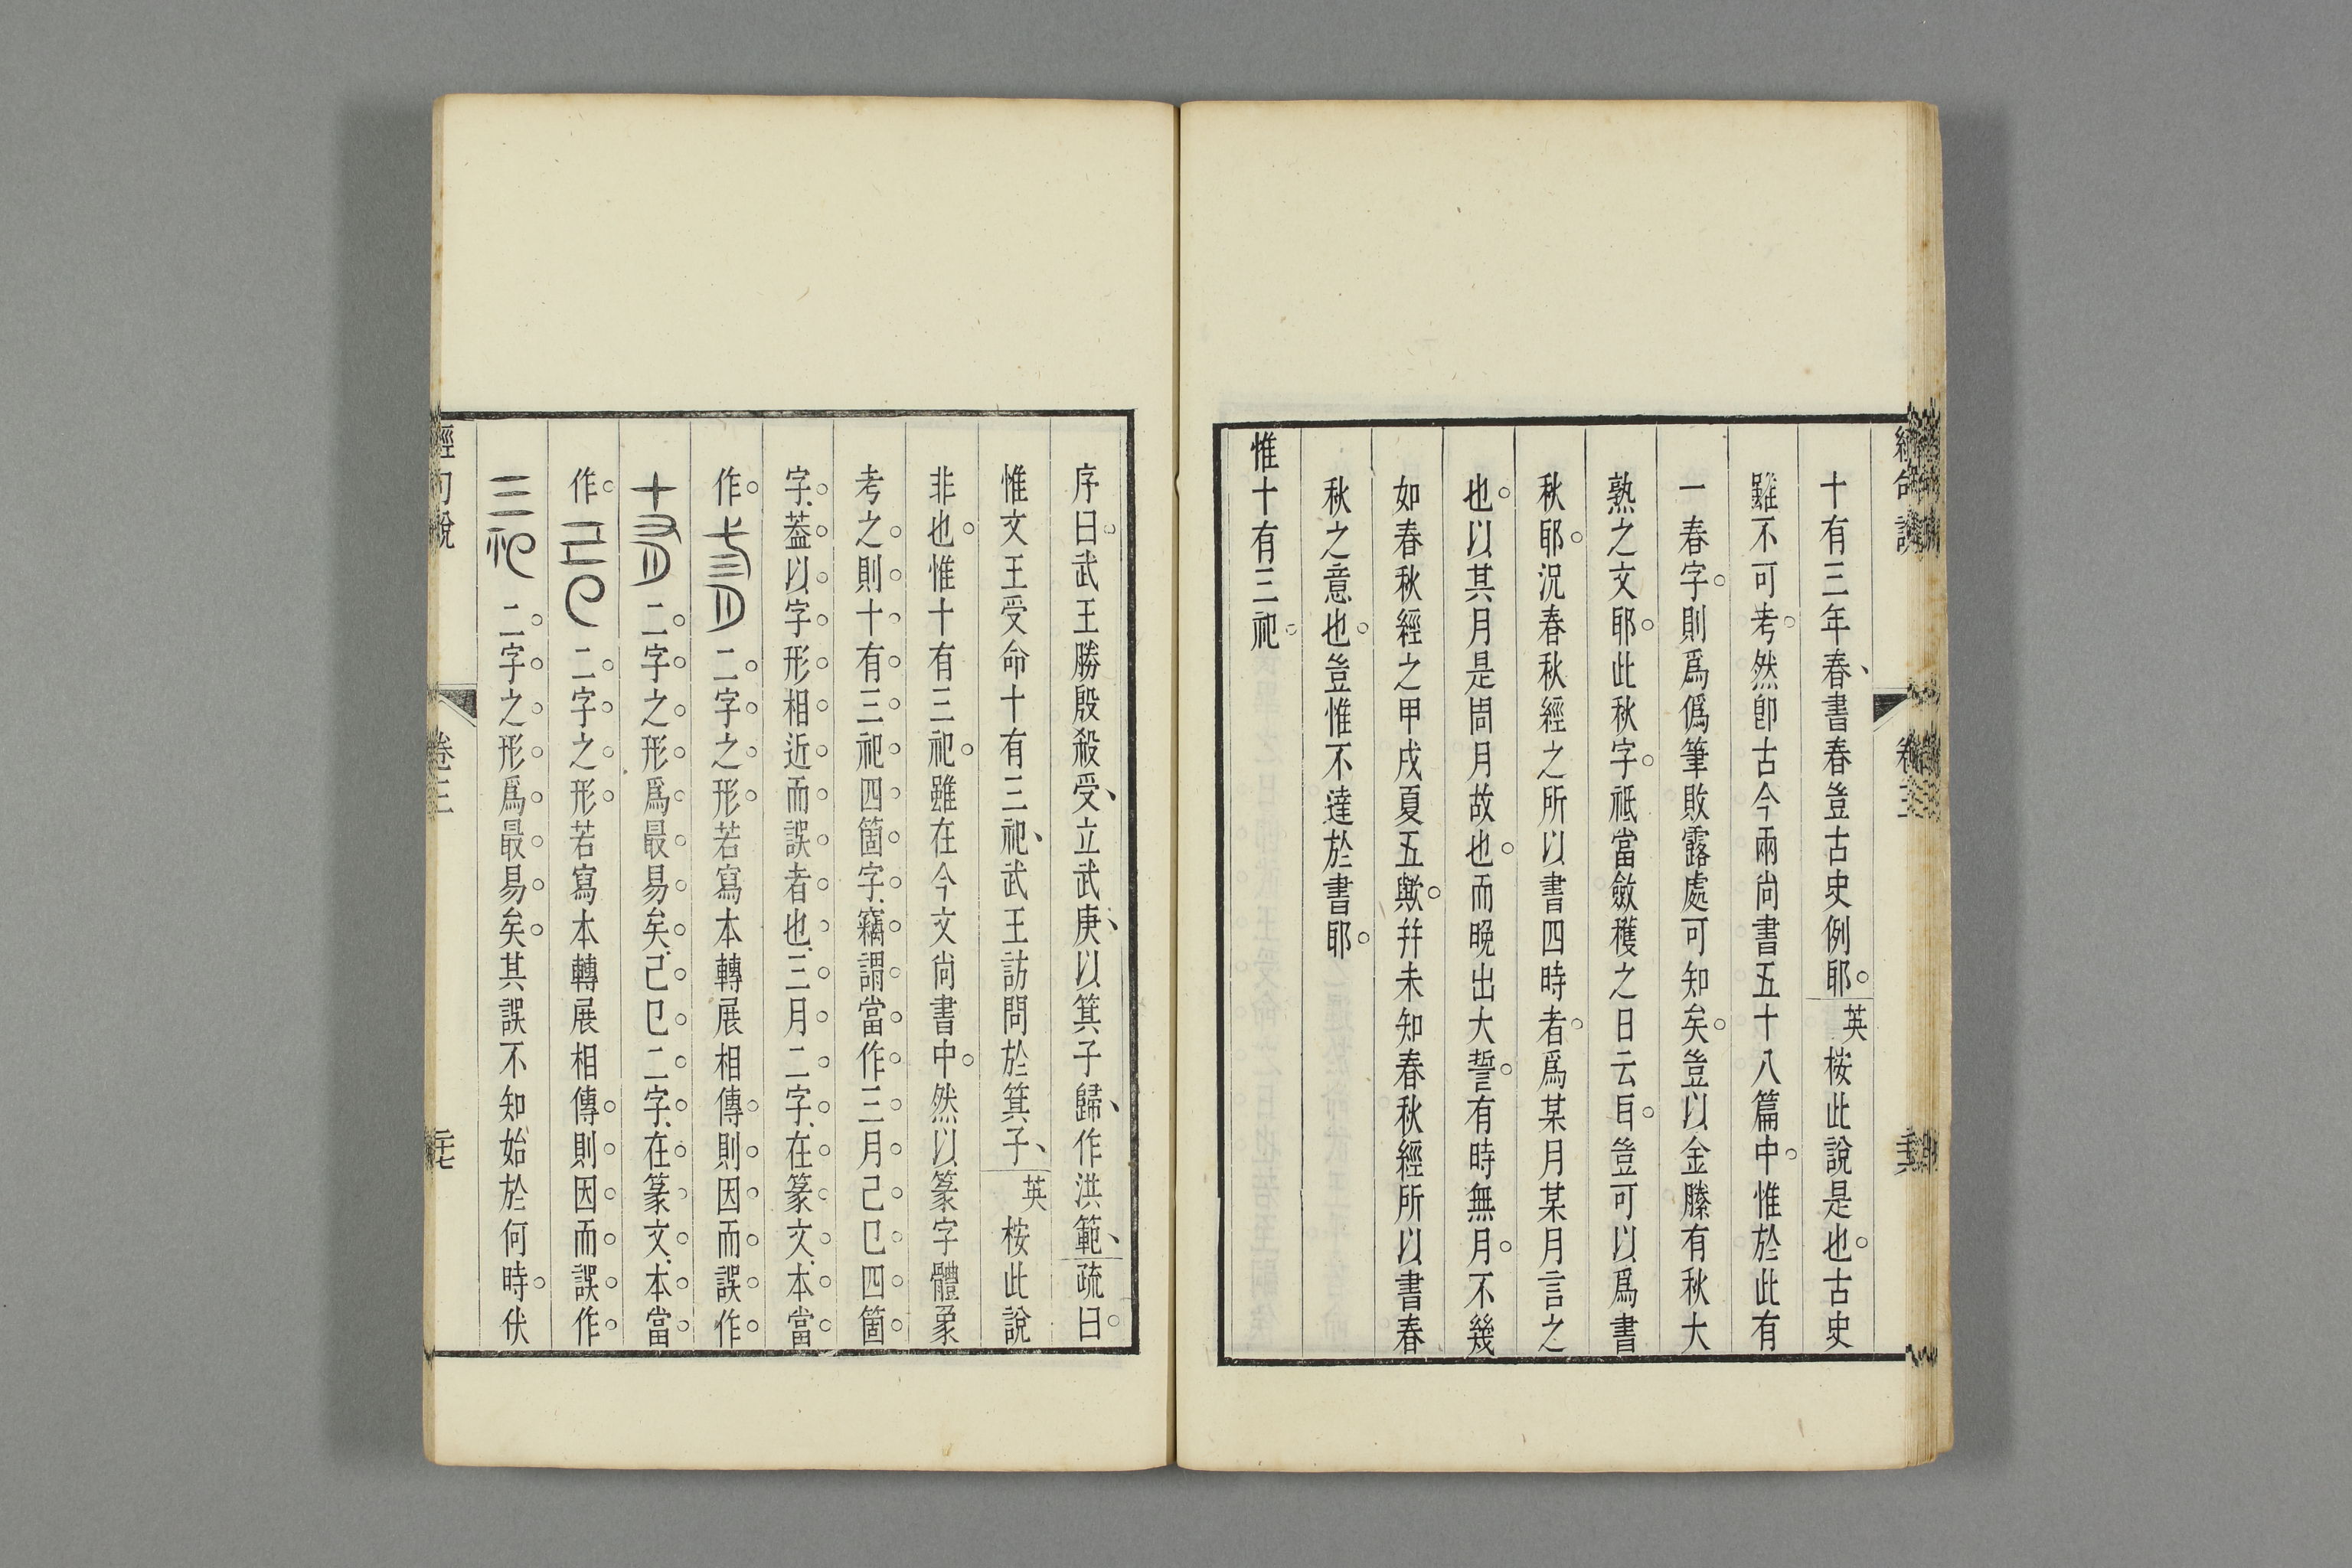 十有三年春、書春豈古史例耶。英桉此說是也。古史
雖不可考。然卽古今兩尚書五十八篇中。惟於此有
一春字。則爲僞筆敗露處可知矣。豈以金縢有秋大
熟之文耶。此秋字。祗當斂穫之日云𦣞。豈可以爲書
秋耶。況春秋經之所以書四時者。爲某月某月言之
也。以其月是周月故也。而晚出大誓。有時無月。不幾
如春秋經之甲戌夏五歟。幷未知春秋經所以書春
秋之意也。豈惟不達於書耶。
惟十有三祀。
序曰。武王勝殷殺受、立武庚、以箕子歸、作洪範、疏曰。
惟文王受命十有三祀、武王訪問於箕子、英桉此說
非也。惟十有三祀。雖在今文尚書中。然以篆字體象
考之。則十有三祀四箇字竊謂當作三月己巳四箇
字蓋以字形相近而誤者也三月二字在篆文本當
作二字之形若寫本轉展相傳則因而誤作
十二字之形爲最易矣己巳二字在篆文本當
作二字之形若寫本轉展相傳則因而誤作
三祀二字之形爲最易矣。其誤不知始於何時。伏
經句說
卷三